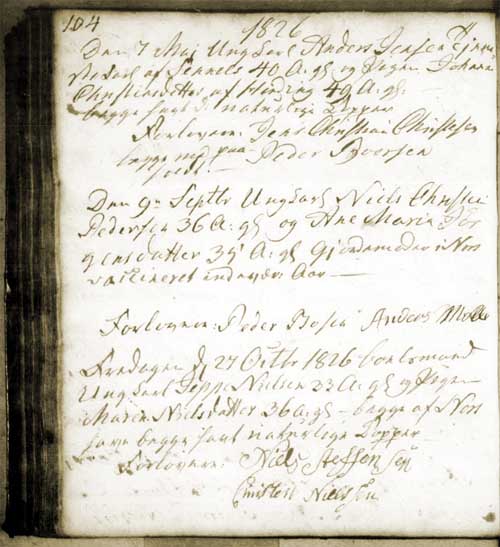 104
1826
Den 7 Maj Ungkarl Anders Jensen
af Sennels 40 A: gl og Pigen Johanne
Christensdatter af 40 A: gl:
begge havt de naturlige Kopper
Forlovere: Jens Christian Christensen
begge med paa Peder Iversen
Den 9n Septbr Ungkarl Niels Christen
Pedersen 36 A: gl og Ane Marie Jør
gensdatter 35 A: gl Gjordemoder i Nors
vaccineret Aar
Forlovere: Peder Anders
Fredagen d 27 Octbr 1826
Ungkarl Jeppe Nielsen 33 A: gl og Pigen
Maren Nielsdatter 36 A: gl - begge af Nors
begge havt naturlige Kopper
Forlovere: Niels Steffensen
Christen Nielsen